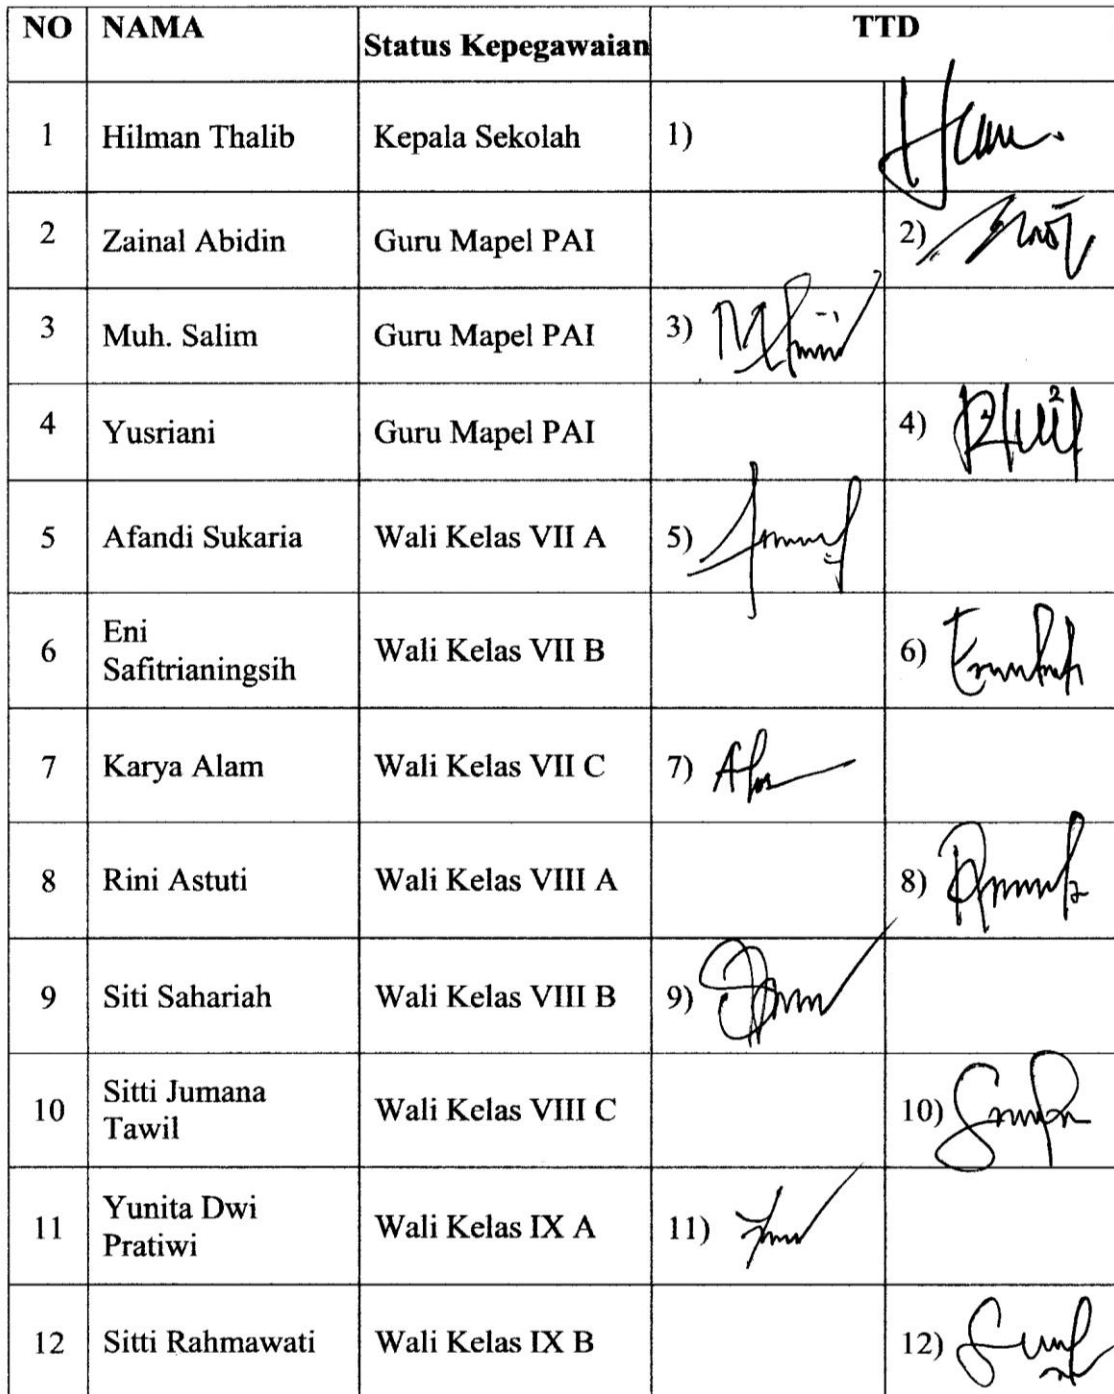 NO NAMA Status Kepegawaian TTD
1 Hilman Thalib Kepala Sekolah 1)
2 Zainal Abidin Guru Mapel PAI 2)
3 Muh. Salim Guru Mapel PAI 3)
4 Yusriani Guru Mapel PAI 4)
5 Afandi Sukaria Wali Kelas VII A 5)
6 Eni
Safitrianingsih Wali Kelas VII B 6)
7 Karya Alam Wali Kelas VII C 7)
8 Rini Astuti Wali Kelas VIII A 8)
9 Siti Sahariah Wali Kelas VIII B 9)
10 Sitti Jumana
Tawil Wali Kelas VIII C 10)
11 Yunita Dwi
Pratiwi Wali Kelas IX A 11)
12 Sitti Rahmawati Wali Kelas IX B 12)